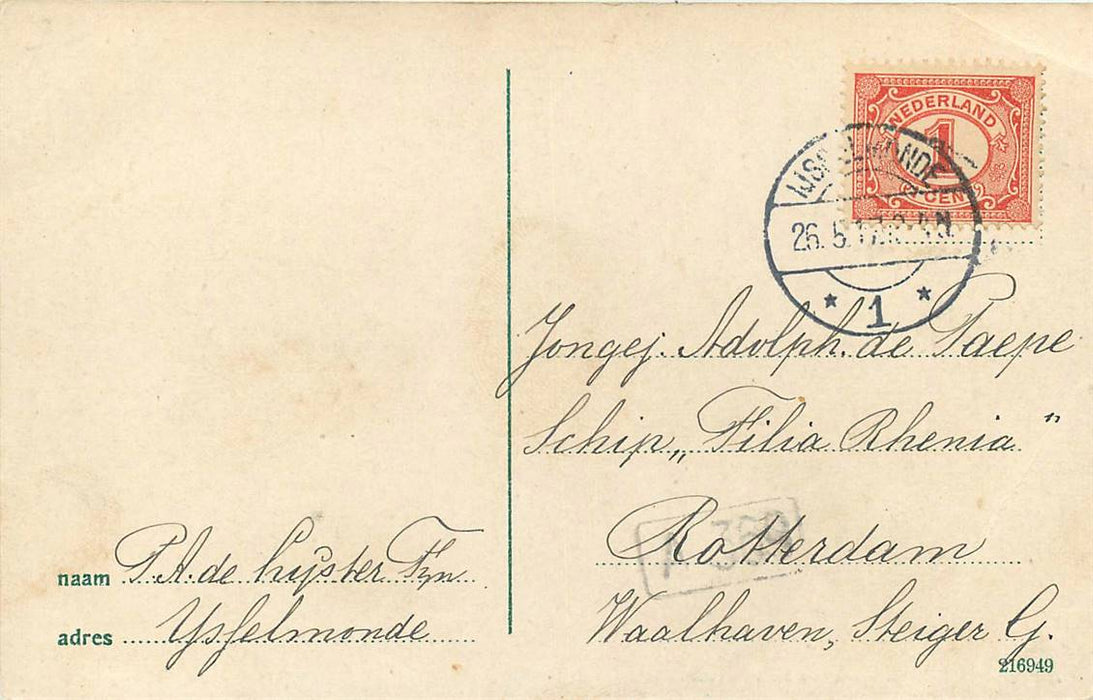 NEDERLAND
1
CENT
IJSSELMONDE
26.5.17
1
Jongej. Adolph. de Paepe
Schip „Filia Rhenia”
Rotterdam
Waalhaven, Steiger G.
naam P.A. de Huyster Fzn
adres Ysselmonde
216949